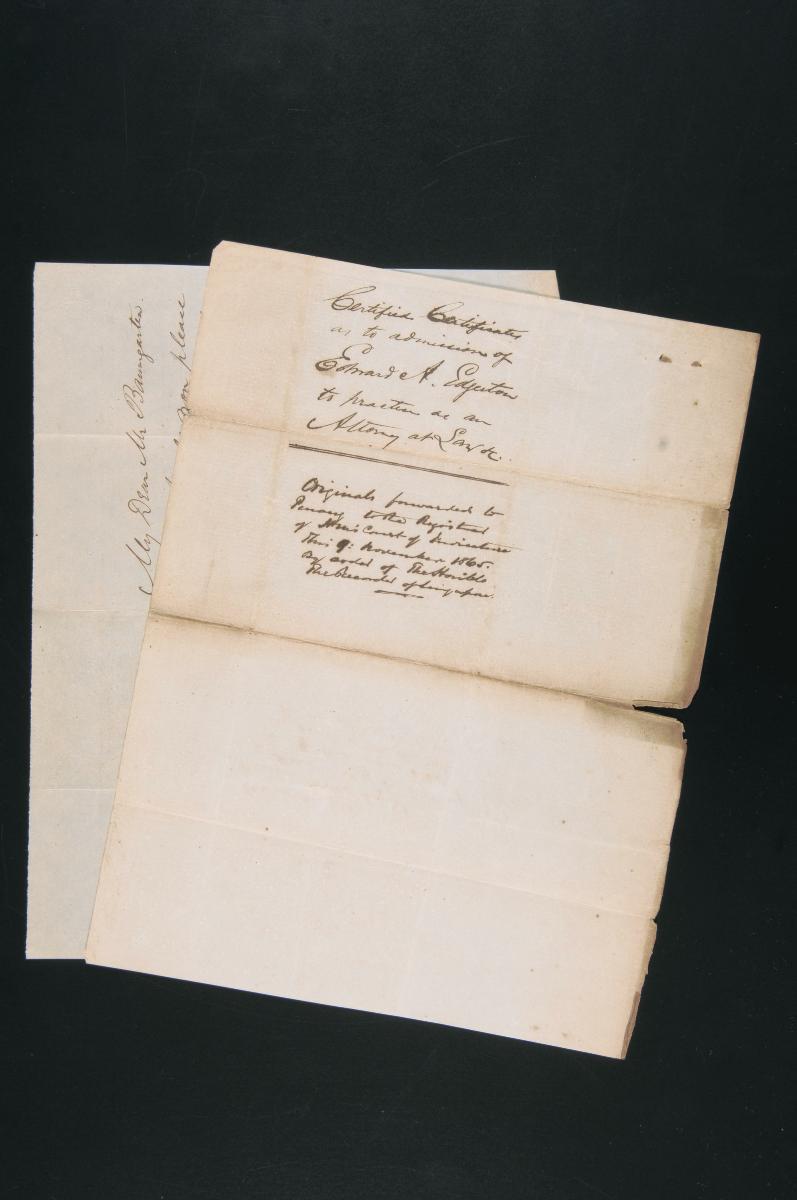 Certified Certificates
as to admission of
Edward A. Edgerton
to practice as an
Attorney at Law &c.
Originals forwarded to
Penang to the Registrar
of Court of Judicature
this 9: November 1865.
By order of The Honble
The Recorder of Singapore.
My Dear Mr Baumgarten.
you please